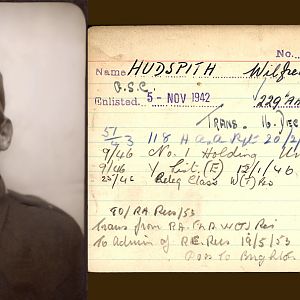 No.
Name HUDSPITH Wilfre
Enlisted. 5 - NOV 1942 229 A
Trans. 16. DEC
118 H.A.A. Rgt 20/2/
9/46 No. 1 Holding
9/46 Y List (E) 12/1/46
Releg Class W(T) Res
80/RA Res/53
Trans from RA (TA) WO) Res
To Admin of R.E. Res 19/5/53
Pos to Brighton